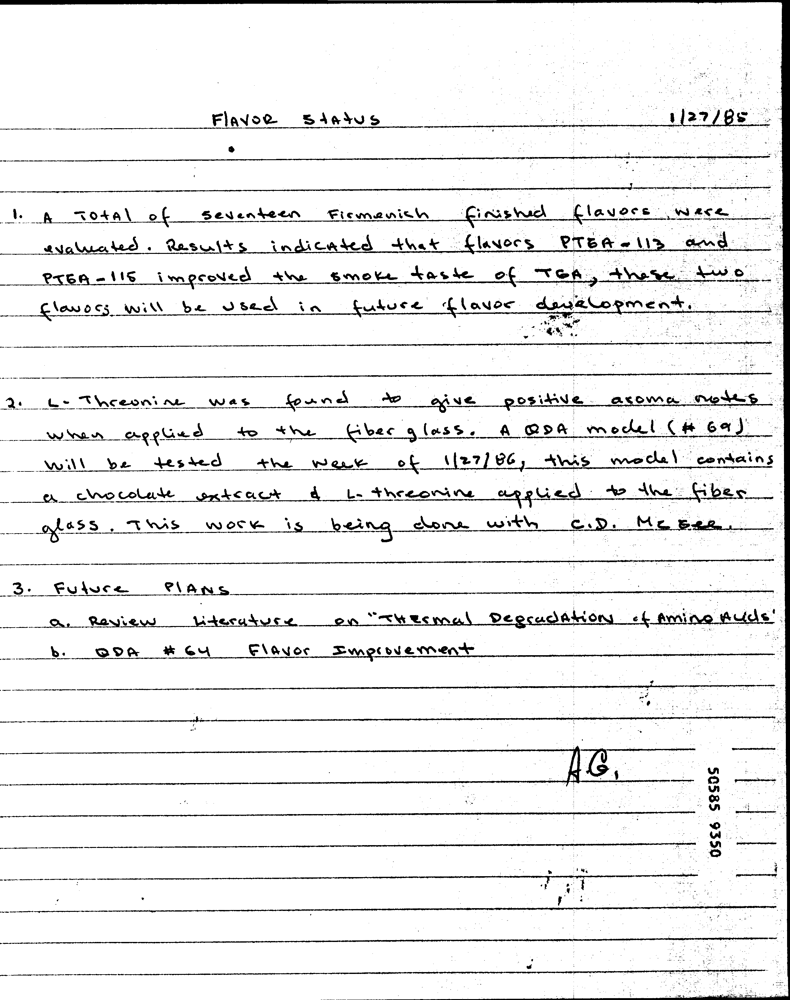 Flavor Status 1/27/85
1. A Total of seventeen Firmenich finished flavors were
evaluated. Results indicated that flavors PTEA-113 and
PTEA-115 improved the smoke taste of TGA, these two
flavors will be used in future flavor development.
2. L-Threonine was found to give positive aroma notes
when applied to the fiber glass. A QDA model (#69)
will be tested the week of 1/27/86, this model contains
a chocolate extract & L-threonine applied to the fiber
glass. This work is being done with C.D. McGee.
3. Future Plans
a. Review Literature on "Thermal Degradation of Amino Acids'
b. QDA #64 Flavor Improvement
A.G.
50585 9350